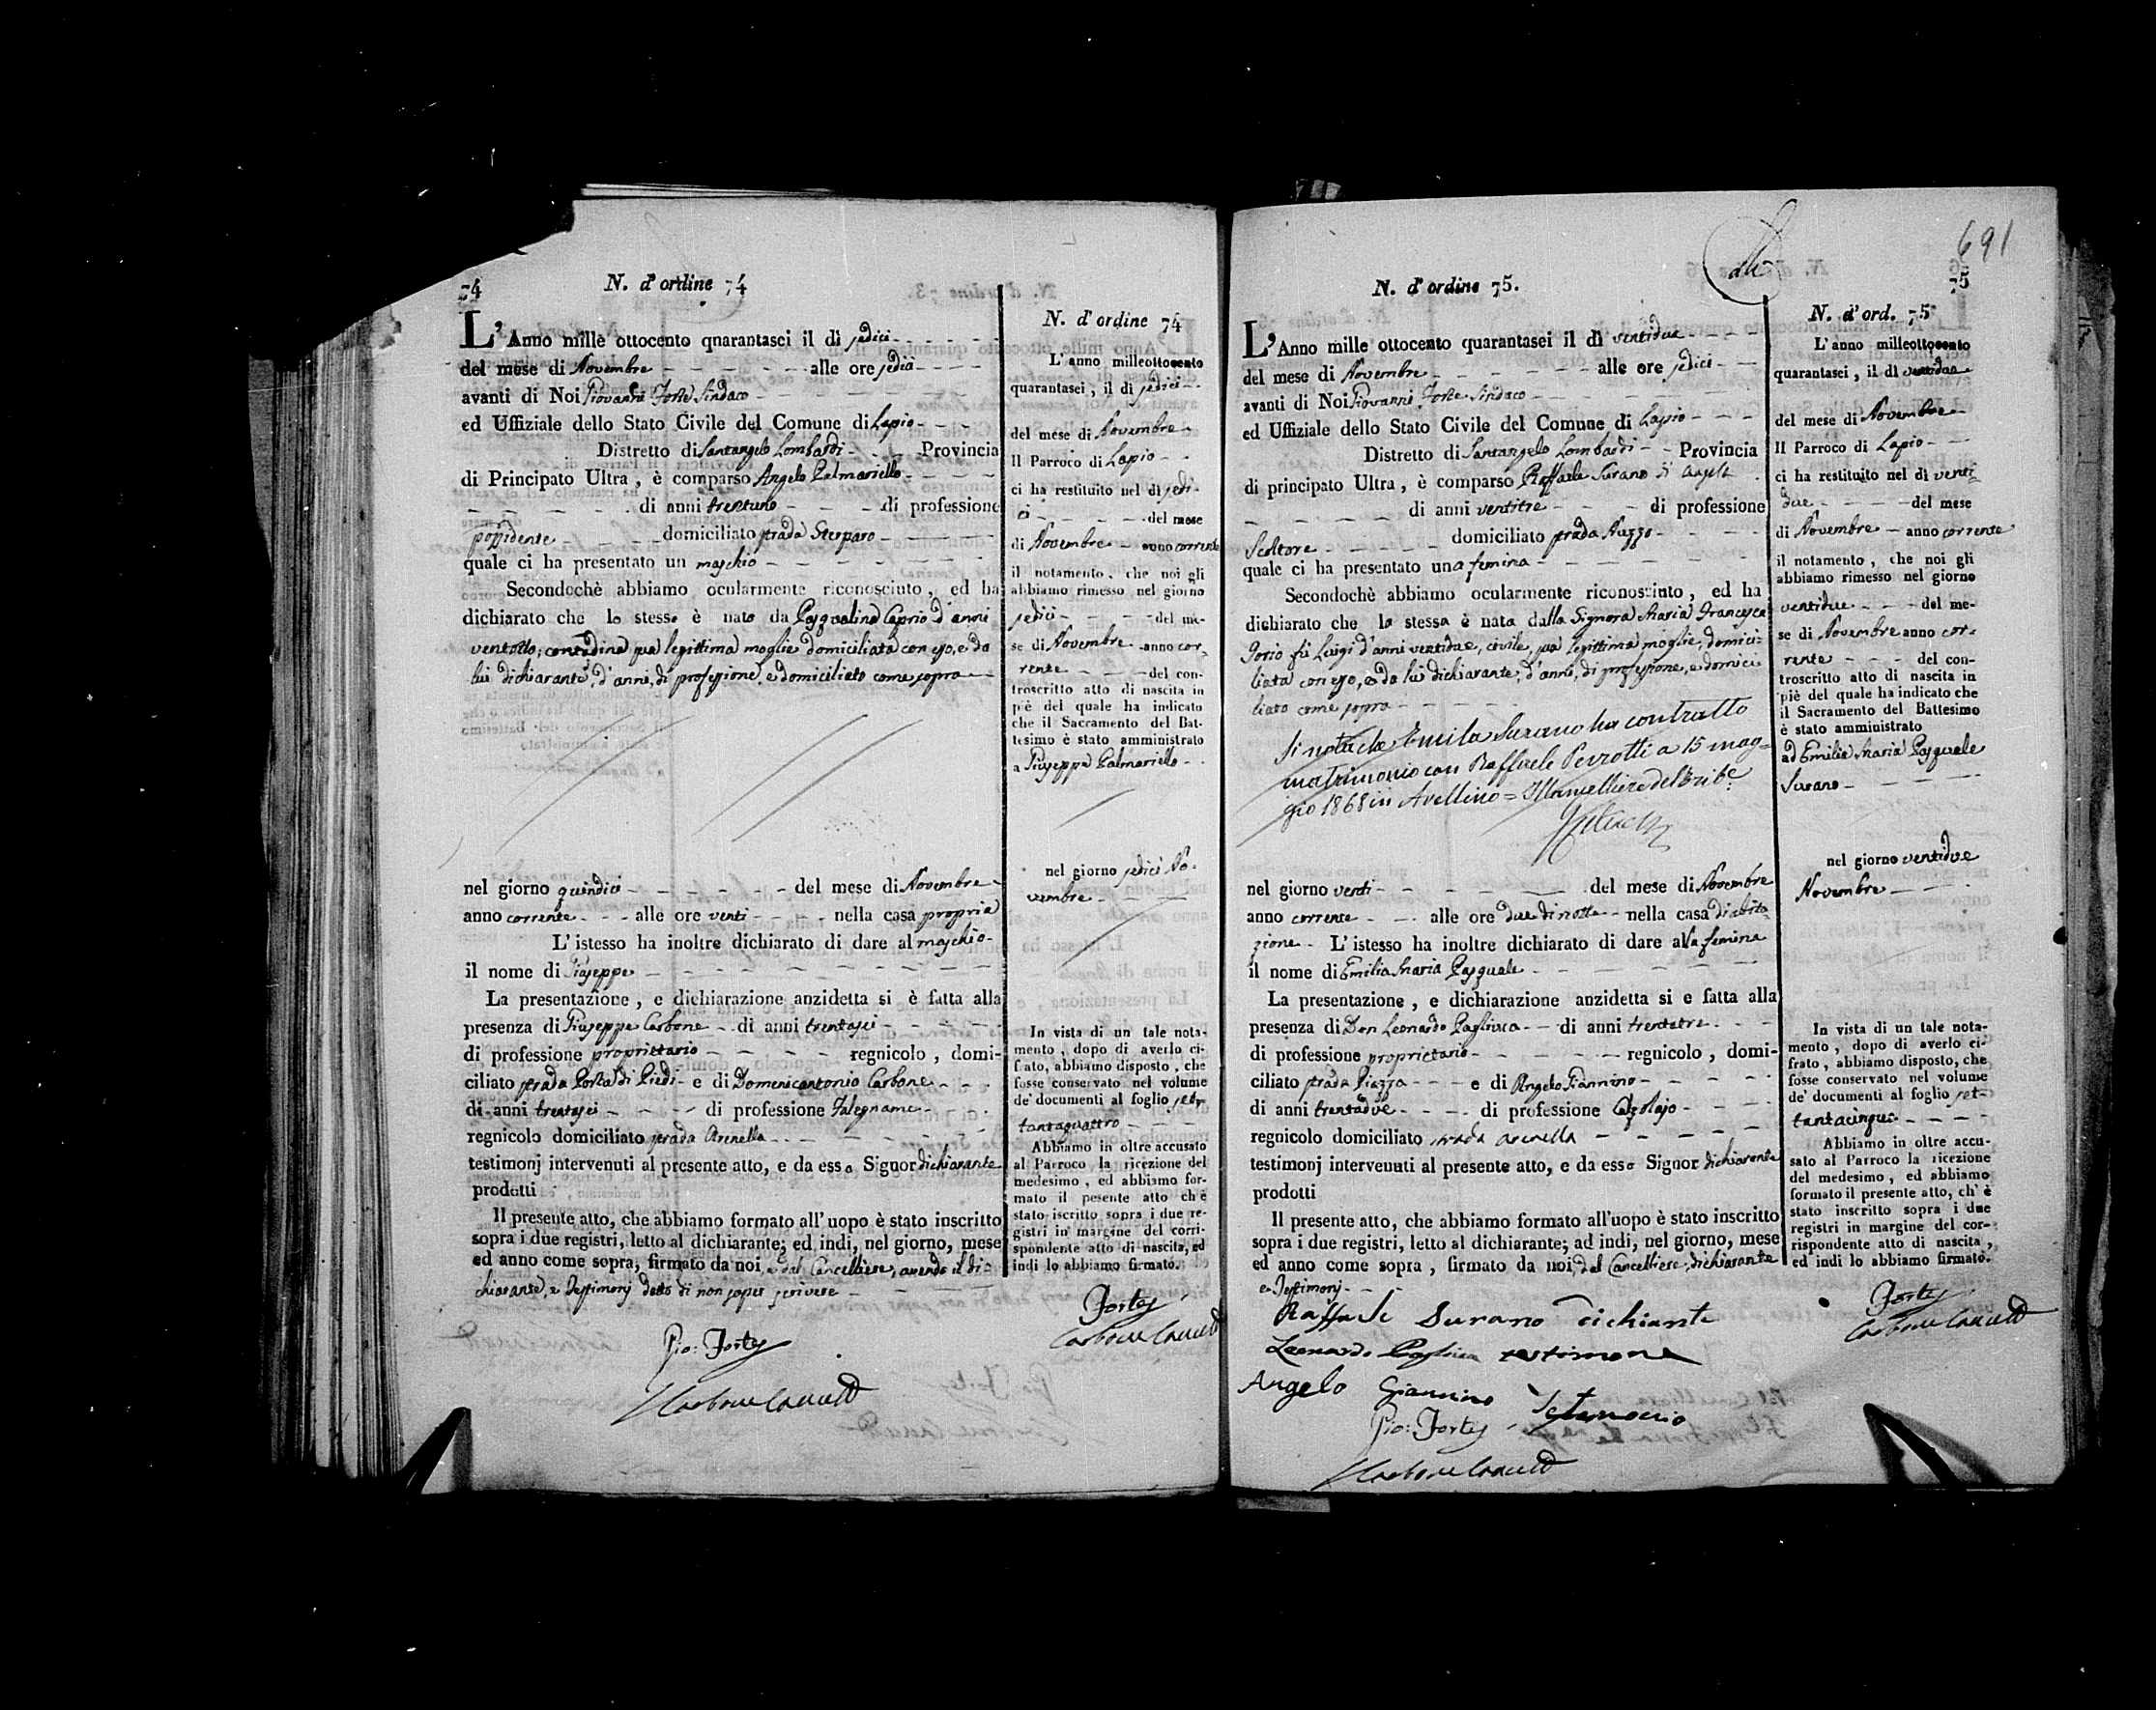 74
N. d'ordine 74
L'Anno mille ottocento quarantasei il dì sedici
del mese di Novembre alle ore sedici
avanti di Noi Giovanni Forte Sindaco
ed Uffiziale dello Stato Civile del Comune di Lapio
Distretto di Santangelo Lombardi Provincia
di Principato Ultra, è comparso Angelo Palmariello
di anni trentuno di professione
possidente domiciliato strada
quale ci ha presentato un maschio
Secondochè abbiamo ocularmente riconosciuto, ed ha
dichiarato che lo stesso è nato da Pasqualina Caprio d'anni
ventotto, contadina sua legittima moglie domiciliata con esso, e da
lui dichiarante, d'anni, di professione, e domiciliato come sopra
nel giorno quindici del mese di Novembre
anno corrente alle ore venti nella casa propria
L'istesso ha inoltre dichiarato di dare al maschio
il nome di Giuseppe
La presentazione, e dichiarazione anzidetta si è fatta alla
presenza di Giuseppe Carbone di anni trentasei
di professione proprietario regnicolo, domi-
ciliato strada Porta di Piedi e di Domenicantonio Carbone
di anni trentasei di professione Falegname
regnicolo domiciliato strada Arenella
testimonj intervenuti al presente atto, e da esso Signor dichiarante
prodotti
Il presente atto, che abbiamo formato all'uopo è stato inscritto
sopra i due registri, letto al dichiarante; ed indi, nel giorno, mese
ed anno come sopra, firmato da noi, e dal Cancelliere, avendo il di-
chiarante, e Testimonj detto di non saper scrivere
Gio: Forte
Carbone
N. d'ordine 74
L'anno milleottocento
quarantasei, il dì sedici
del mese di Novembre
Il Parroco di Lapio
ci ha restituito nel dì sedi-
ci del mese
di Novembre anno corrente
il notamento, che noi gli
abbiamo rimesso nel giorno
sedici del me-
se di Novembre anno cor-
rente del con-
troscritto atto di nascita in
piè del quale ha indicato
che il Sacramento del Bat-
tesimo è stato amministrato
a Giuseppe Palmariello
nel giorno sedici No-
vembre
In vista di un tale nota-
mento, dopo di averlo ci-
frato, abbiamo disposto, che
fosse conservato nel volume
de' documenti al foglio set-
tantaquattro
Abbiamo in oltre accusato
al Parroco la ricezione del
medesimo, ed abbiamo for-
mato il pesente atto ch'è
stato iscritto sopra i due re-
gistri in margine del corri-
spondente atto di nascita, ed
indi lo abbiamo firmato.
Forte
Carbone
691
75
N. d'ordine 75.
L'Anno mille ottocento quarantasei il dì ventidue
del mese di Novembre alle ore sedici
avanti di Noi Giovanni Forte Sindaco
ed Uffiziale dello Stato Civile del Comune di Lapio
Distretto di Santangelo Lombardi Provincia
di principato Ultra, è comparso Raffaele Surano di
di anni ventitre di professione
Scoltore domiciliato strada
quale ci ha presentato una femina
Secondochè abbiamo ocularmente riconosciuto, ed ha
dichiarato che la stessa è nata dalla Signora Maria Francesca
Iorio fu Luigi d'anni ventidue, civile, sua legittima moglie, domici-
liata con esso, e da lui dichiarante, d'anni, di professione, e domici-
liato come sopra
Si nota che Emilia Surano ha contratto
matrimonio con Raffaele Perrotti a 15 mag-
gio 1868 in Avellino = Il Cancelliere del Trib:e
nel giorno venti del mese di Novembre
anno corrente alle ore due di notte nella casa di abita-
zione L'istesso ha inoltre dichiarato di dare alla femina
il nome di Emilia Maria Pasquale
La presentazione, e dichiarazione anzidetta si e fatta alla
presenza di Don Leonardo Pagliuca di anni trentatre
di professione proprietario regnicolo, domi-
ciliato strada Piazza e di Angelo Giannino
di anni trentadue di professione Calzolajo
regnicolo domiciliato strada Arenella
testimonj intervenuti al presente atto, e da esso Signor dichiarante
prodotti
Il presente atto, che abbiamo formato all'uopo è stato inscritto
sopra i due registri, letto al dichiarante; ad indi, nel giorno, mese
ed anno come sopra, firmato da noi, dal Cancelliere, dichiarante
e Testimonj
Raffaele Surano dichiante
Leonardo Pagliuca testimone
Angelo Giannino
Gio: Forte
Carbone
N. d'ord. 75
L'anno milleottocento
quarantasei, il dì ventidue
del mese di Novembre
Il Parroco di Lapio
ci ha restituito nel dì venti-
due del mese
di Novembre anno corrente
il notamento, che noi gli
abbiamo rimesso nel giorno
ventidue del me-
se di Novembre anno cor-
rente del con-
troscritto atto di nascita in
piè del quale ha indicato che
il Sacramento del Battesimo
è stato amministrato
ad Emilia Maria Pasquale
Surano
nel giorno ventidue
Novembre
In vista di un tale nota-
mento, dopo di averlo ci-
frato, abbiamo disposto, che
fosse conservato nel volume
de' documenti al foglio set-
tantacinque
Abbiamo in oltre accu-
sato al Parroco la ricezione
del medesimo, ed abbiamo
formato il presente atto, ch'è
stato inscritto sopra i due
registri in margine del cor-
rispondente atto di nascita,
ed indi lo abbiamo firmato.
Forte
Carbone